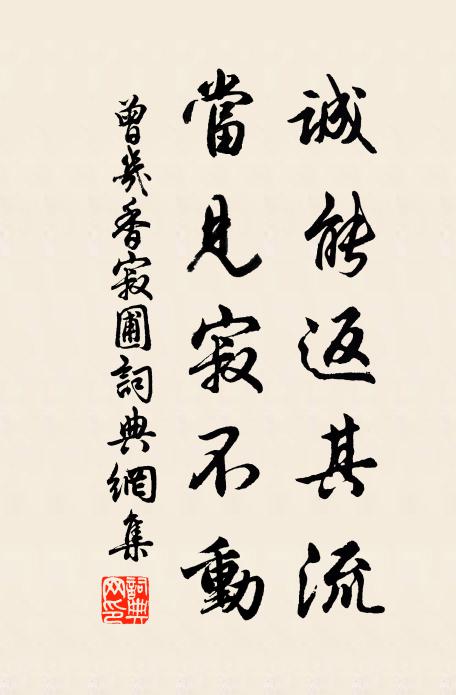 誠能返其流
當見寂不動
曾幾香寂圃詞典網集
詞典网印